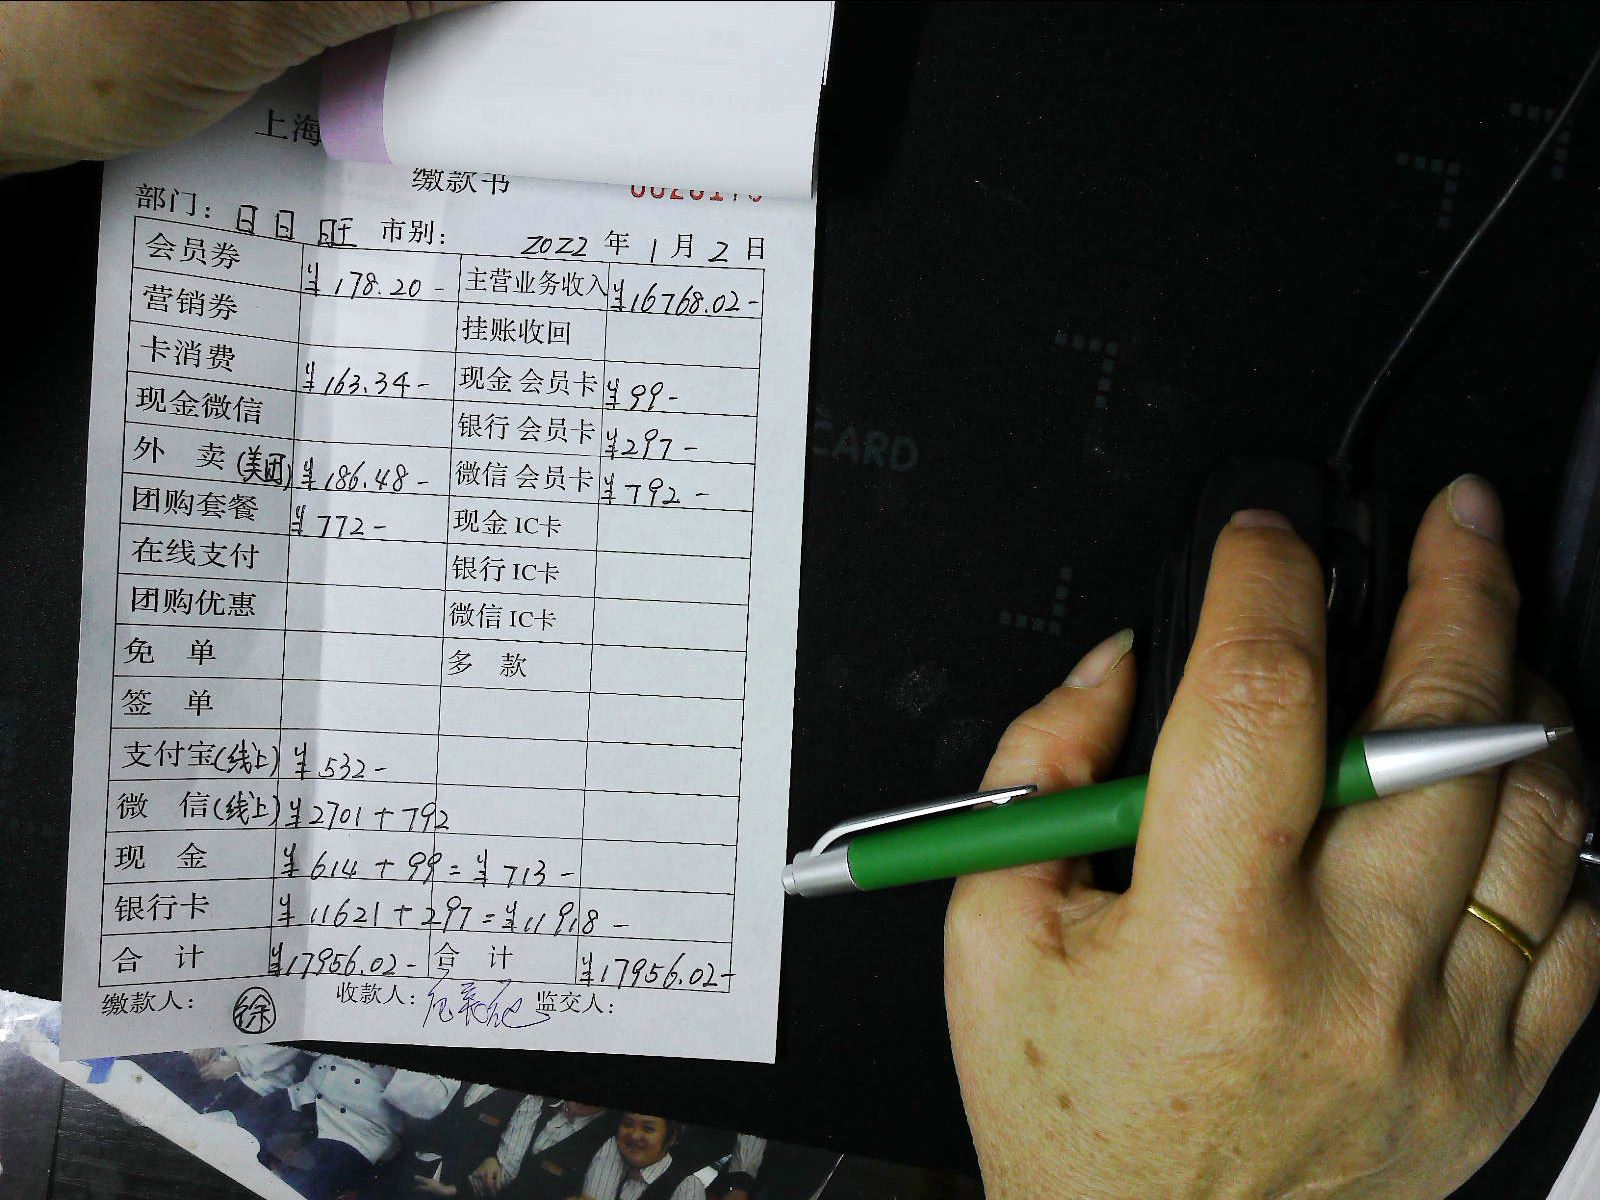 上海
缴款书
部门： 日日旺 市别： 2022 年 1 月 2 日
会员券 ¥178.20- 主营业务收入 ¥16768.02-
营销券 挂账收回
卡消费 ¥163.34- 现金 会员卡 ¥99-
现金微信 银行 会员卡 ¥297-
外 卖(美团) ¥186.48- 微信 会员卡 ¥792-
团购套餐 ¥772- 现金 IC卡
在线支付 银行 IC卡
团购优惠 微信 IC卡
免 单 多 款
签 单
支付宝(线上) ¥532-
微 信(线上) ¥2701+792
现 金 ¥614+99=¥713-
银行卡 ¥11621+297=¥11918-
合 计 ¥17956.02- 合 计 ¥17956.02-
缴款人： 徐 收款人： 监交人：
CARD